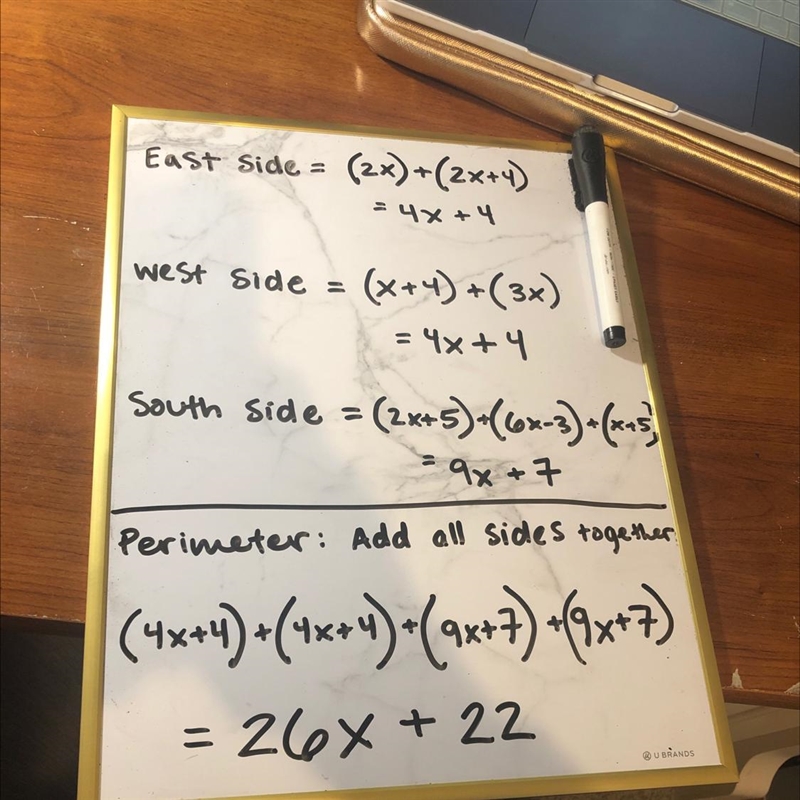 East side = (2x)+(2x+4)
= 4x + 4
west side = (x+4) + (3x)
= 4x + 4
South side = (2x+5)+(6x-3)+(x+5)
= 9x + 7
Perimeter: Add all sides together:
(4x+4)+(4x+4)+(9x+7)+(9x+7)
= 26x + 22
U BRANDS